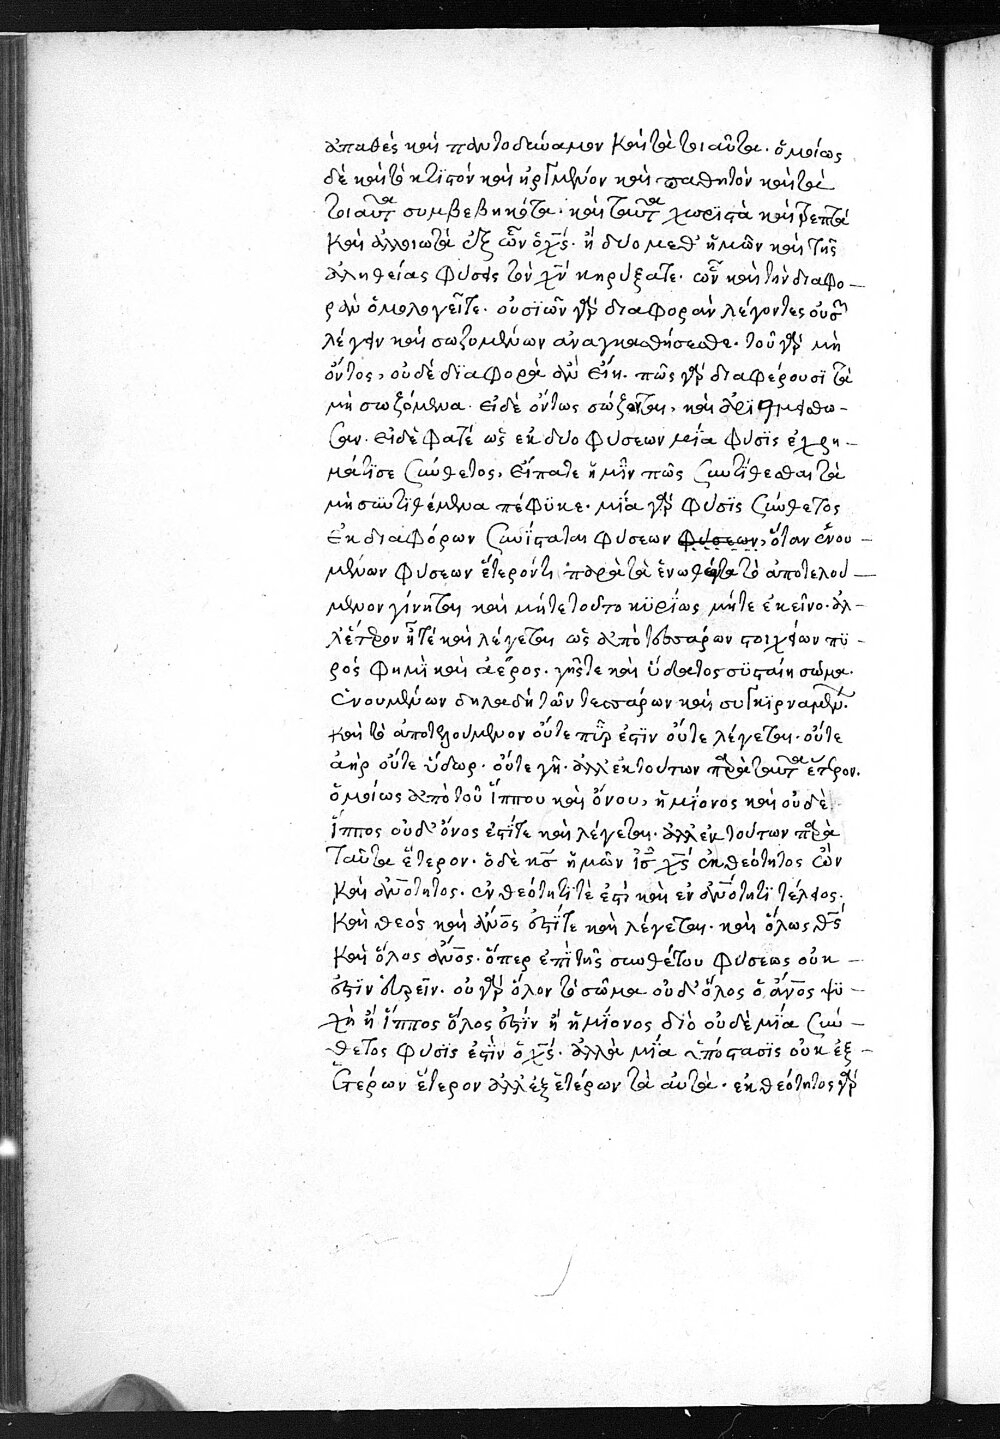 ἀπαθὲς καὶ παντοδύναμον καὶ τὰ τοιαῦτα· ὁμοίως
δὲ καὶ τὸ κτιστὸν καὶ ἠργμένον καὶ παθητὸν καὶ τὰ
τοιαῦτα συμβεβηκότα· καὶ ταῦτα χωριστὰ καὶ τρεπτὰ
καὶ ἀλλοιωτὰ ἐξ ὧν ὁ χς· ἢ δυο μεθ' ἡμῶν καὶ τῆς
ἀληθείας φύσεις τὸν χν κηρύξατε· ὧν καὶ τὴν διαφο-
ρὰν ὁμολογεῖτε· οὐσιῶν γὰρ διαφορὰν λέγοντες οὐσῶν
λέγειν καὶ σωζομένων ἀναγκασθήσεσθε· τοῦ γὰρ μὴ
ὄντος, οὐδὲ διαφορὰ ἂν εἴη· πῶς γὰρ διαφέρουσι τὰ
μὴ σωζόμενα· εἰ δὲ ὄντως σώζονται, καὶ ἀριθμείσθω-
σαν· εἰ δὲ φατὲ ὡς ἐκ δυο φύσεων μία φύσις ἐχρη-
μάτισε σύνθετος, εἴπατε ἡμῖν πῶς συντίθεσθαι τὰ
μὴ συντιθέμενα πέφυκε· μία γὰρ φύσις σύνθετος
ἐκ διαφόρων συνίσταται φύσεων φύσεων, ὅταν ἑνου-
μένων φύσεων ἕτερόν τι παρὰ τὰ ἑνωθέντα τὸ ἀποτελού-
μενον γίνηται καὶ μήτε τοῦτο κυρίως μήτε ἐκεῖνο· ἀλ-
λ' ἕτερον ἦ τε καὶ λέγεται ὡς ἀπὸ τεσσάρων στοιχείων πυ-
ρός φημὶ καὶ ἀέρος· γῆς τε καὶ ὕδατος συσταίη σῶμα·
ἑνουμένων δηλαδὴ τῶν τεσσάρων καὶ συγκιρναμένων·
καὶ τὸ ἀποτελούμενον οὔτε πῦρ ἐστιν οὔτε λέγεται· οὔτε
ἀὴρ οὔτε ὕδωρ· οὔτε γῆ· ἀλλ' ἐκ τούτων παρὰ ταῦτα ἕτερον.
ὁμοίως ἀπὸ τοῦ ἵππου καὶ ὄνου, ἡμίονος καὶ οὐδὲ
ἵππος οὐδ' ὄνος ἐστί τε καὶ λέγεται· ἀλλ' ἐκ τούτων παρὰ
ταῦτα ἕτερον· ὁ δὲ κς ἡμῶν ις χς ἐκ θεότητος ὢν
καὶ ἀνότητος· ἐν θεότητί τε ἐστὶ καὶ ἐν ἀνότητι τέλειος.
καὶ θεὸς καὶ ἄνος ἐστί τε καὶ λέγεται· καὶ ὅλως θς
καὶ ὅλος ἄνος· ὅπερ ἐπὶ τῆς συνθέτου φύσεως οὐκ
ἔστιν εὑρεῖν· οὐ γὰρ ὅλον τὸ σῶμα οὐδ' ὅλος ὁ ἄνος ψυ-
χὴ ἢ ἵππος ὅλος ἐστὶν ἢ ἡμίονος διὸ οὐδὲ μία σύν-
θετος φύσις ἐστὶν ὁ χς· ἀλλὰ μία ὑπόστασις οὐκ ἐξ
ἑτέρων ἕτερον ἀλλ' ἐξ ἑτέρων τὰ αὐτά· ἐκ θεότητος γὰρ